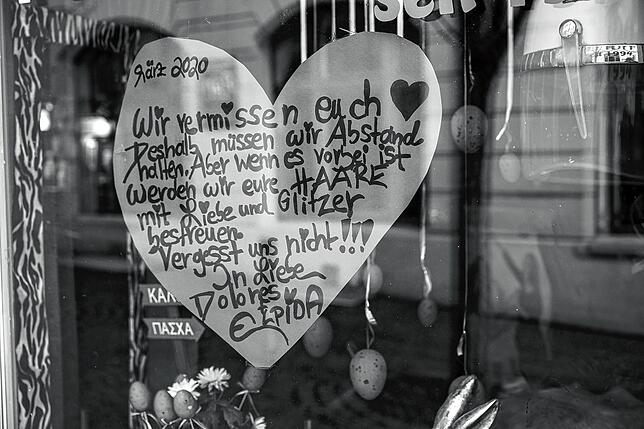 März 2020
Wir vermissen euch
Deshalb müssen wir Abstand
halten. Aber wenn es vorbei ist
werden wir eure HAARE
mit Liebe und Glitzer
bestreuen.
Vergesst uns nicht!!!
In Liebe
Dolores
ELPIDA
ΚΑΛ
ΠΑΣΧΑ
1994